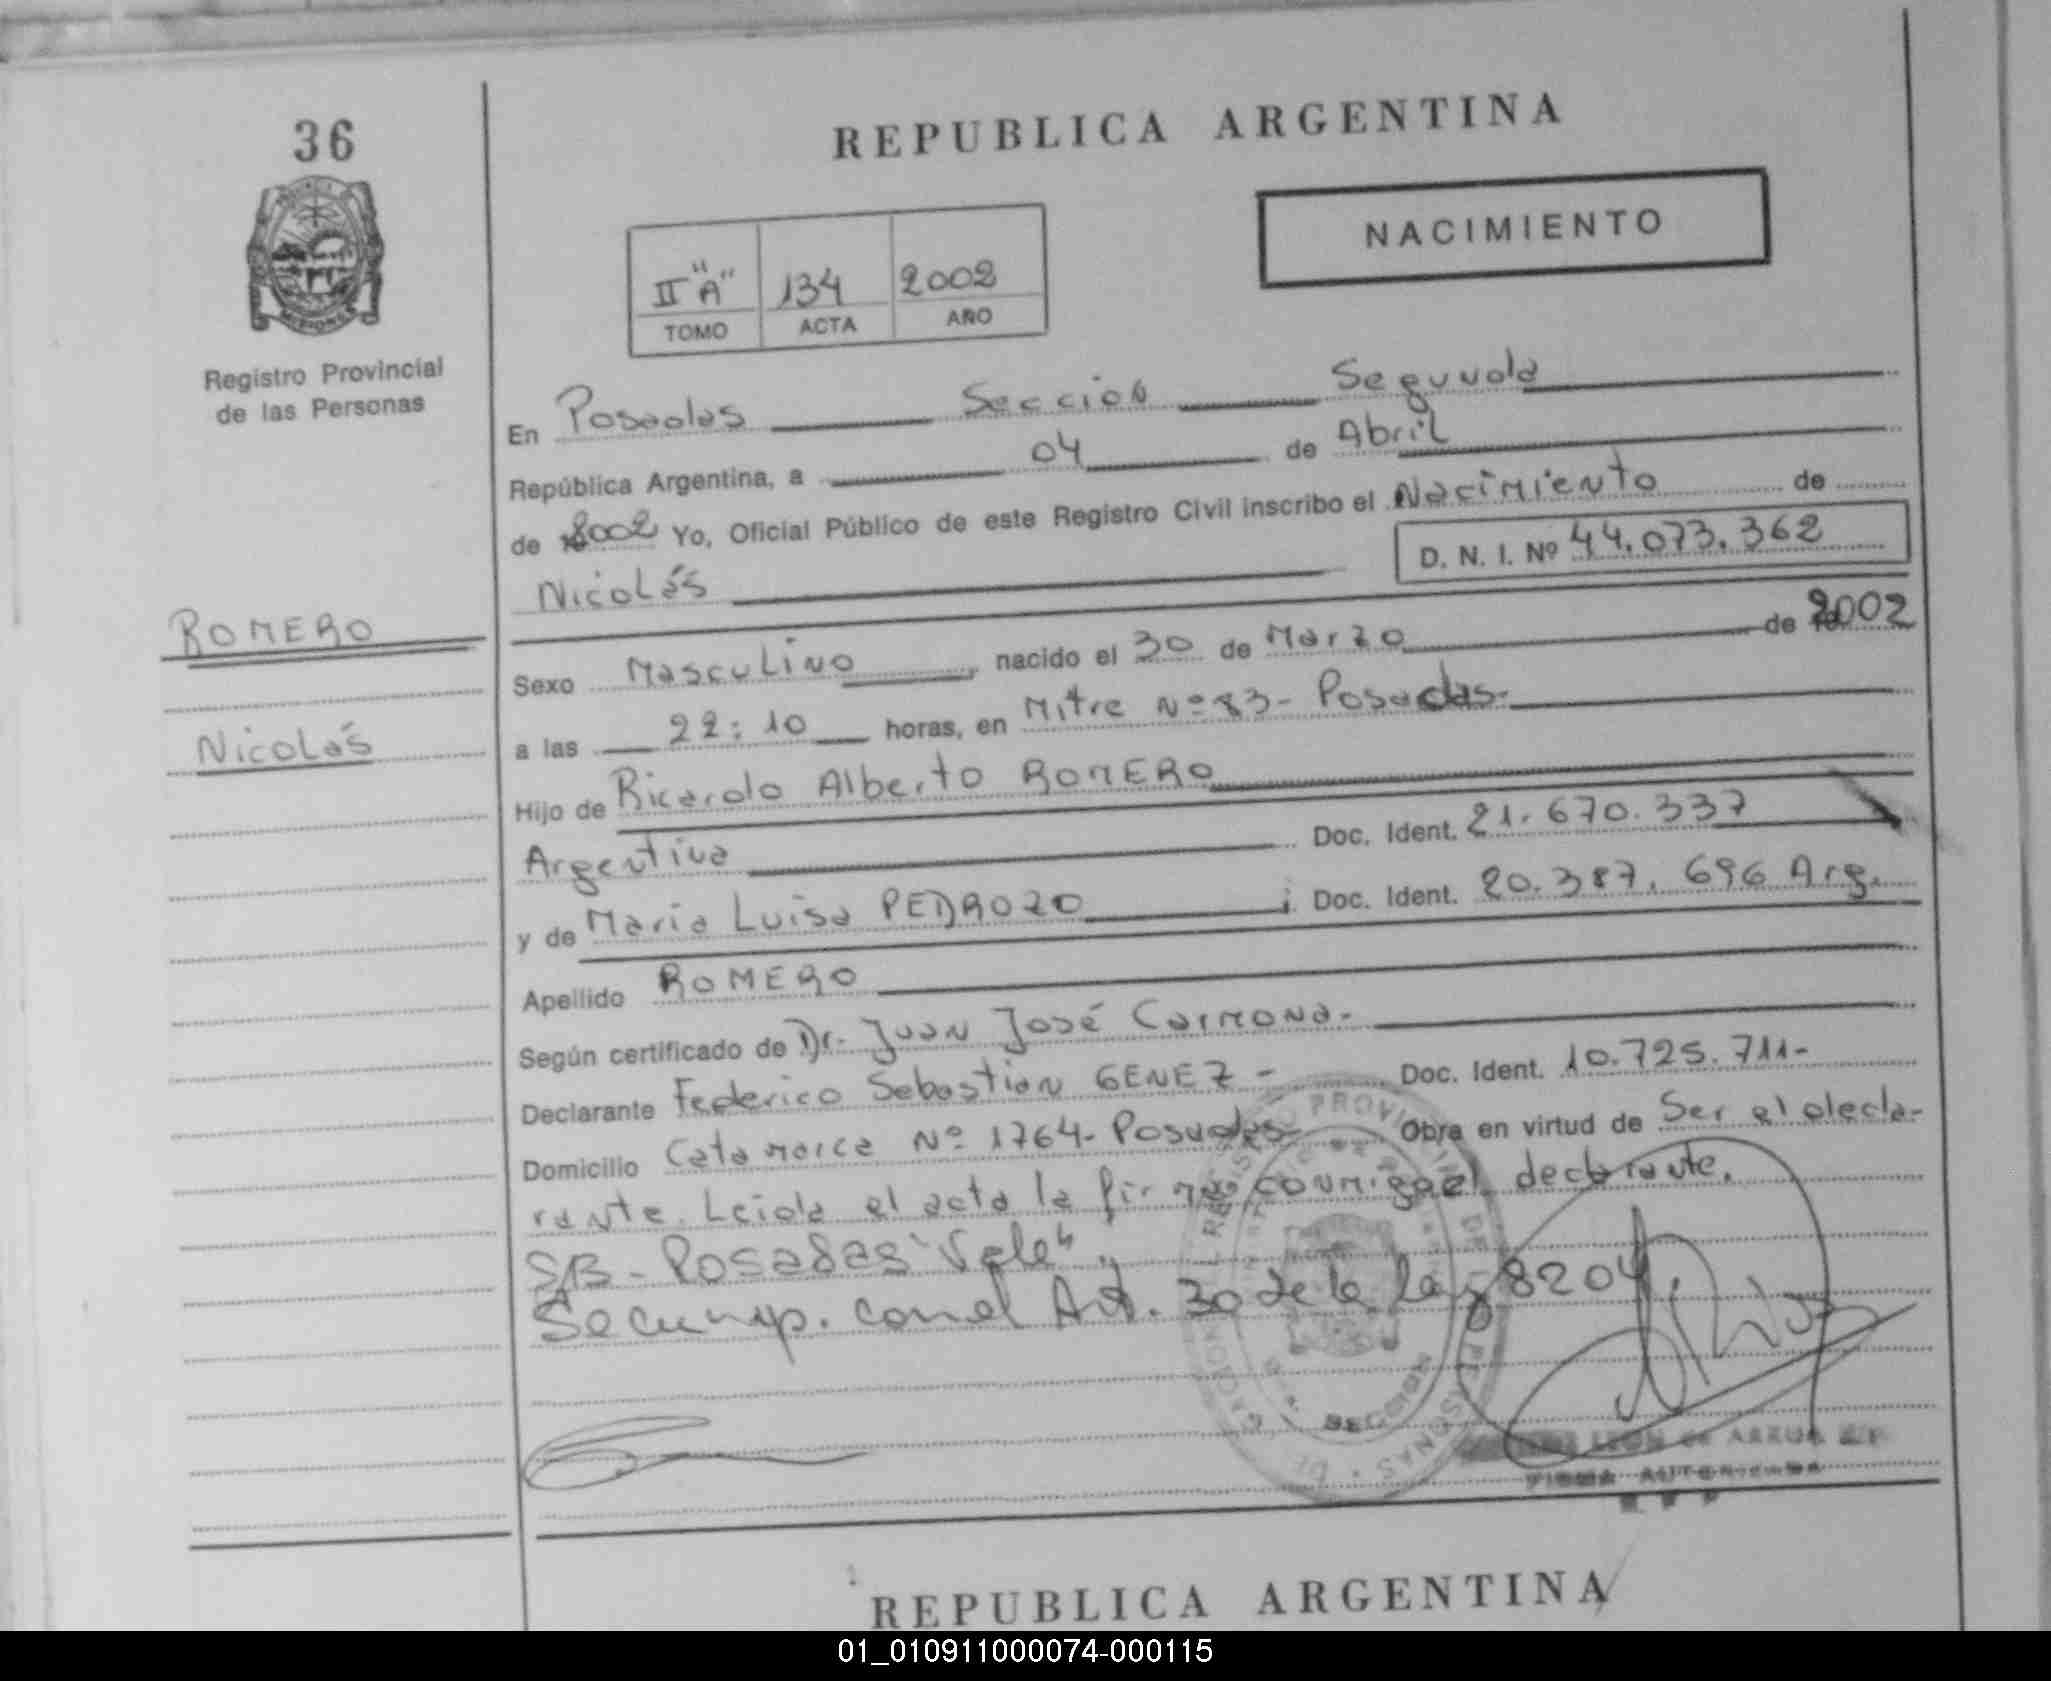 36
REPUBLICA ARGENTINA
NACIMIENTO
II "A" 134 2002
TOMO ACTA AÑO
Registro Provincial
de las Personas
En Posadas Sección Segunda
República Argentina, a 04 de Abril
de 2002 Yo, Oficial Público de este Registro Civil inscribo el Nacimiento de
Nicolás D. N. I. Nº 44.073.362
ROMERO
Nicolás
Sexo Masculino, nacido el 30 de Marzo de 2002
a las 22:10 horas, en Mitre Nº 83- Posadas-
Hijo de Ricardo Alberto ROMERO
Argentina Doc. Ident. 21.670.337
y de Maria Luisa PEDROZO ; Doc. Ident. 20.387.696 Arg.
Apellido ROMERO
Según certificado de Dr. Juan José Carmona-
Declarante Federico Sebastian GENEZ - Doc. Ident. 10.725.711-
Domicilio Catamarca Nº 1764- Posadas Obra en virtud de Ser el decla-
rante. Leida el acta la firma conmigo el declarante.
SB- Posadas "Vale"
Se cump. con el Art. 30 de la Ley 8204
REGISTRO PROVINCIAL DE LAS PERSONAS
FIRMA AUTORIZADA
REPUBLICA ARGENTINA
01_010911000074-000115